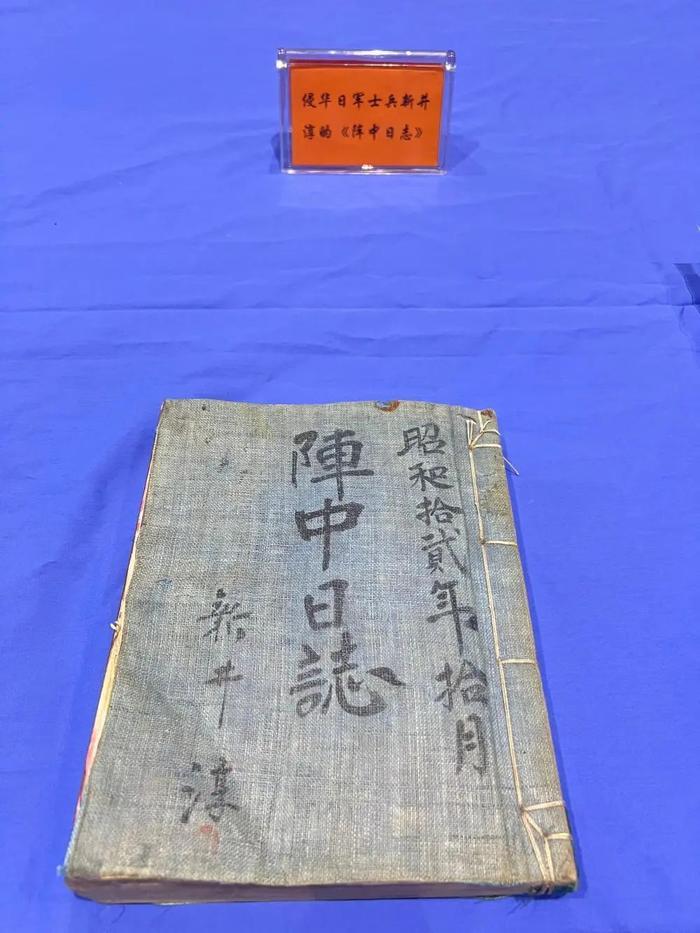 侵华日军士兵新井
淳的《阵中日志》
昭和拾貮年拾月
陣中日誌
新井淳